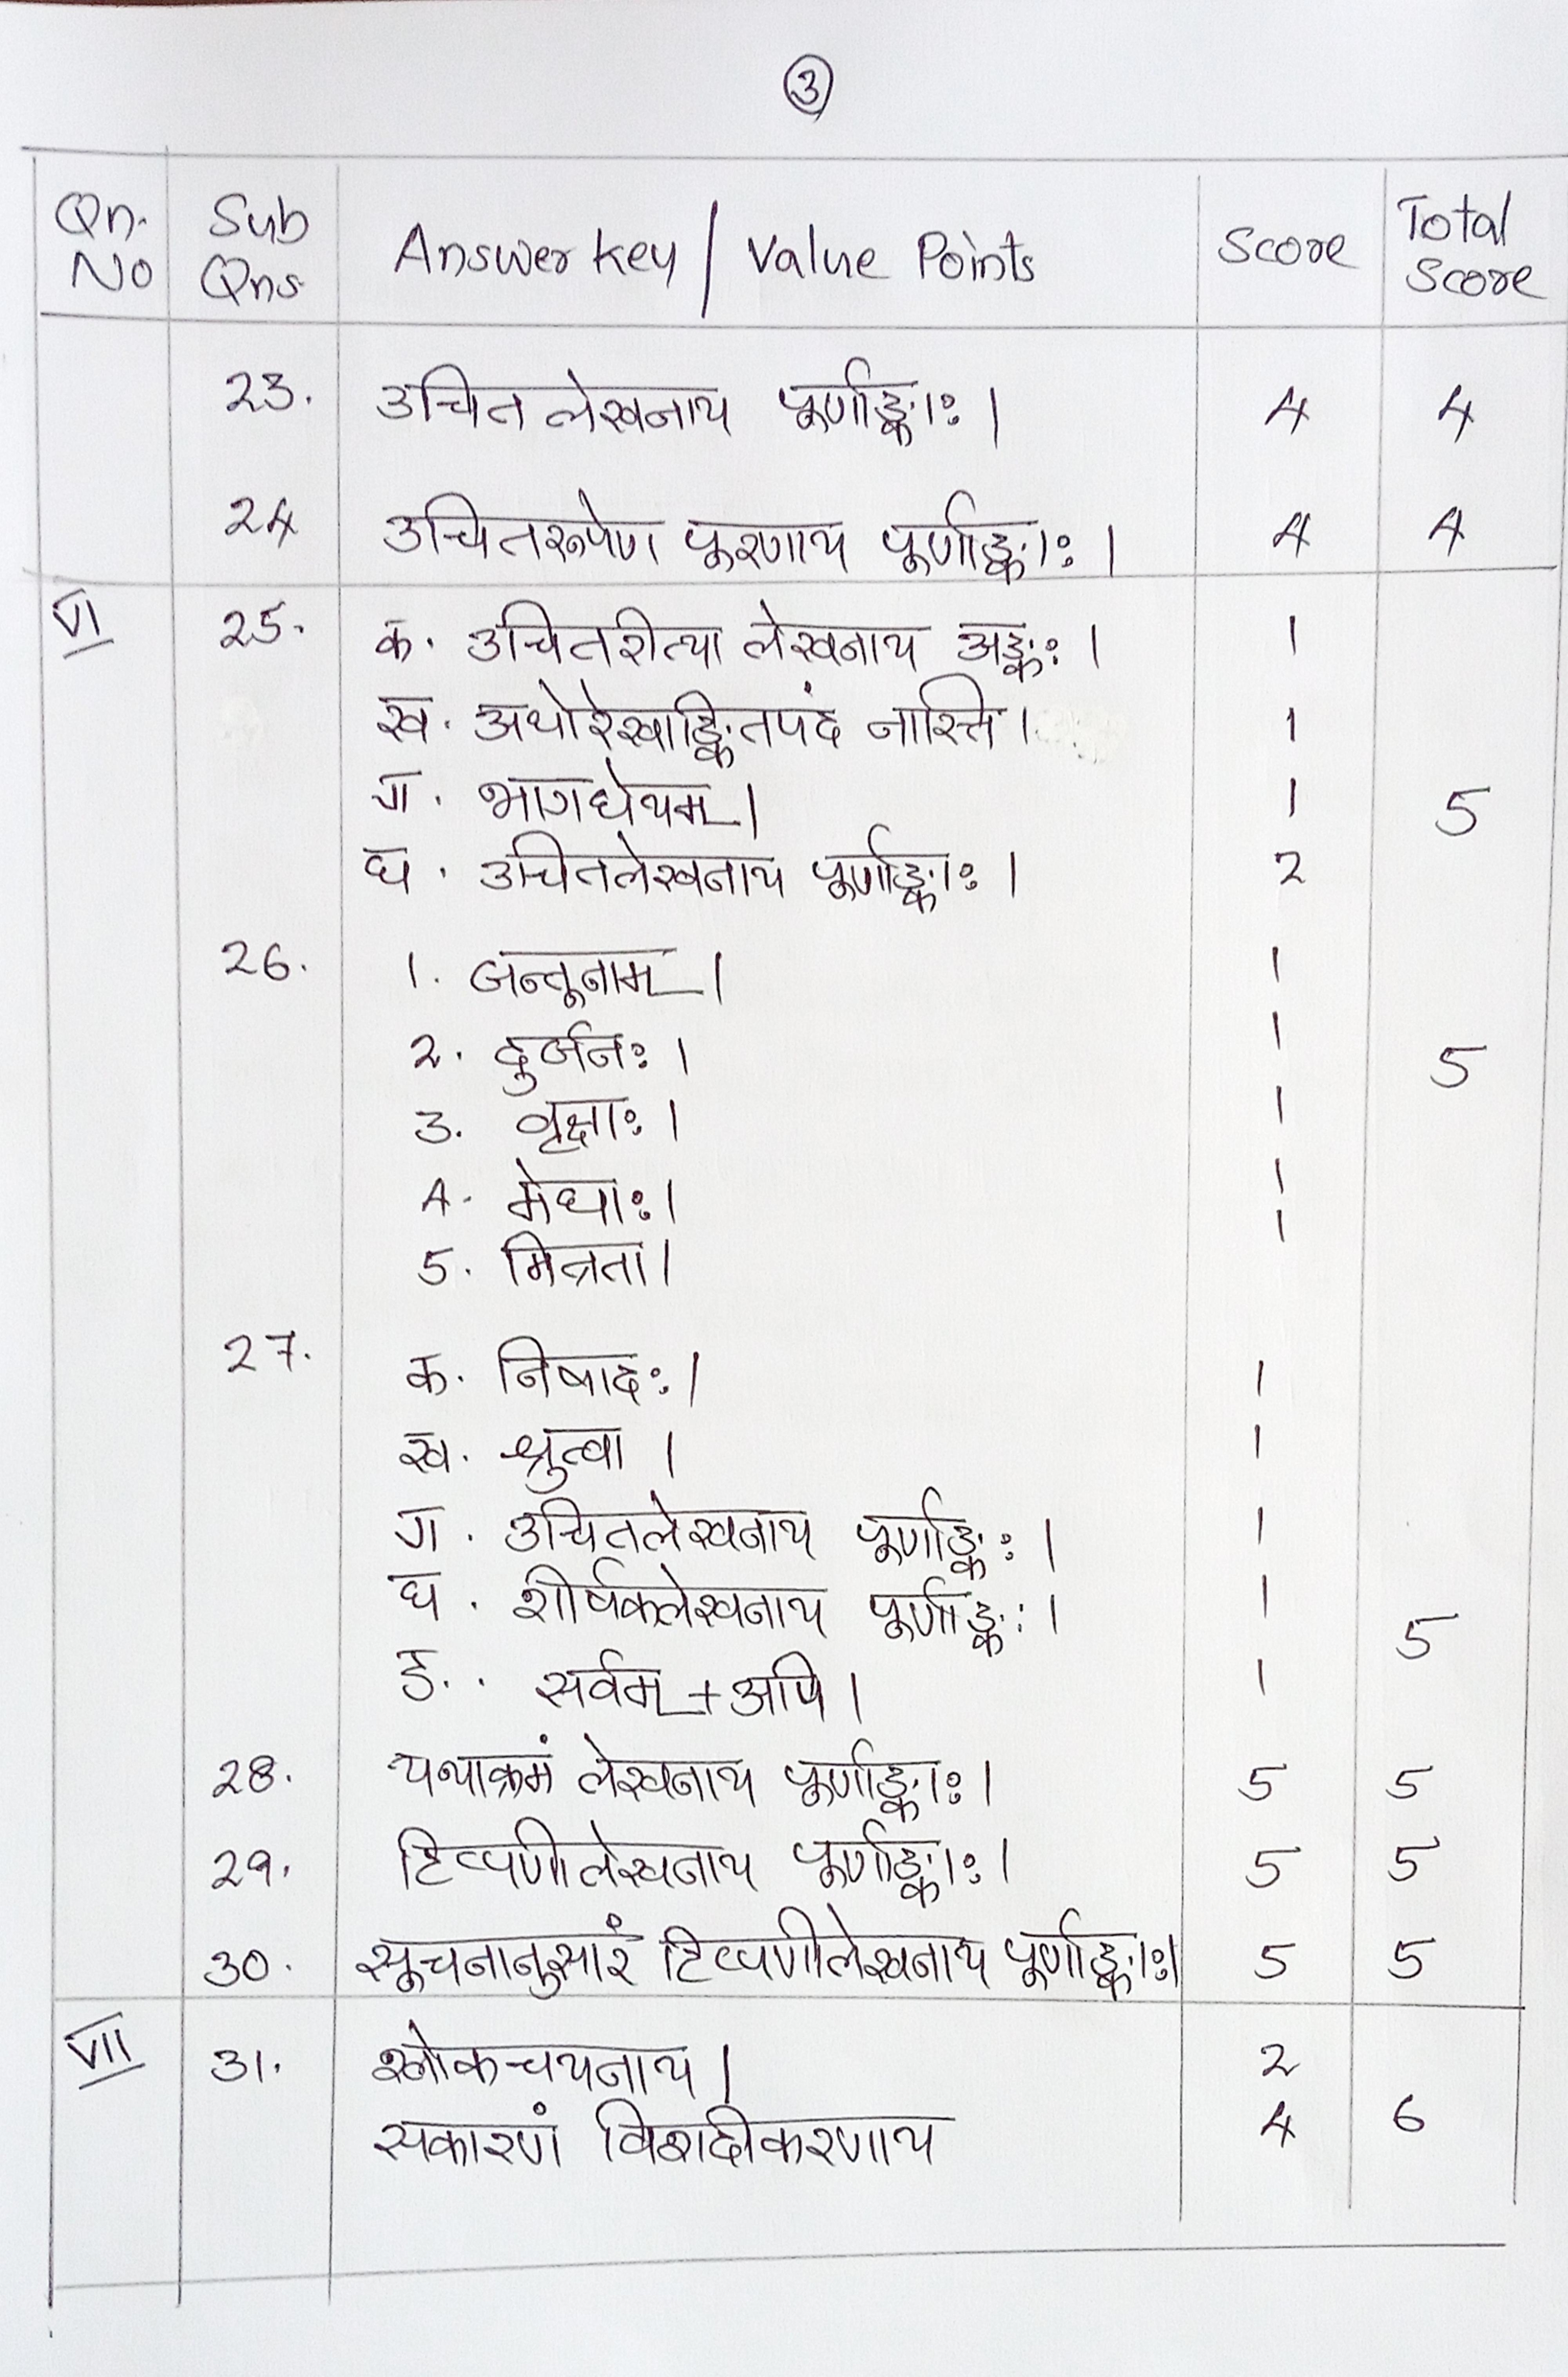 3
Qn. No | Sub Qns | Answer key / Value Points | Score | Total Score
23. उचित लेखनाय पूर्णाङ्काः । 4 4
24 उचितरूपेण पूरणाय पूर्णाङ्काः । 4 4
VI 25. क. उचितरीत्या लेखनाय अङ्कः । 1
ख. अधोरेखाङ्कितपदं नास्ति । 1
ग. भागधेयम् । 1 5
घ. उचितलेखनाय पूर्णाङ्काः । 2
26. 1. जन्तूनाम् । 1
2. दुर्जनः । 1 5
3. वृक्षाः । 1
4. मेघाः । 1
5. मित्रता । 1
27. क. निषादः । 1
ख. श्रुत्वा । 1
ग. उचितलेखनाय पूर्णाङ्कः । 1
घ. शीर्षकलेखनाय पूर्णाङ्कः । 1 5
ङ. सर्वम् + अपि । 1
28. यथाक्रमं लेखनाय पूर्णाङ्काः । 5 5
29. टिप्पणीलेखनाय पूर्णाङ्काः । 5 5
30. सूचनानुसारं टिप्पणीलेखनाय पूर्णाङ्काः । 5 5
VII 31. श्लोकचयनाय । 2
सकारणं विशदीकरणाय 4 6